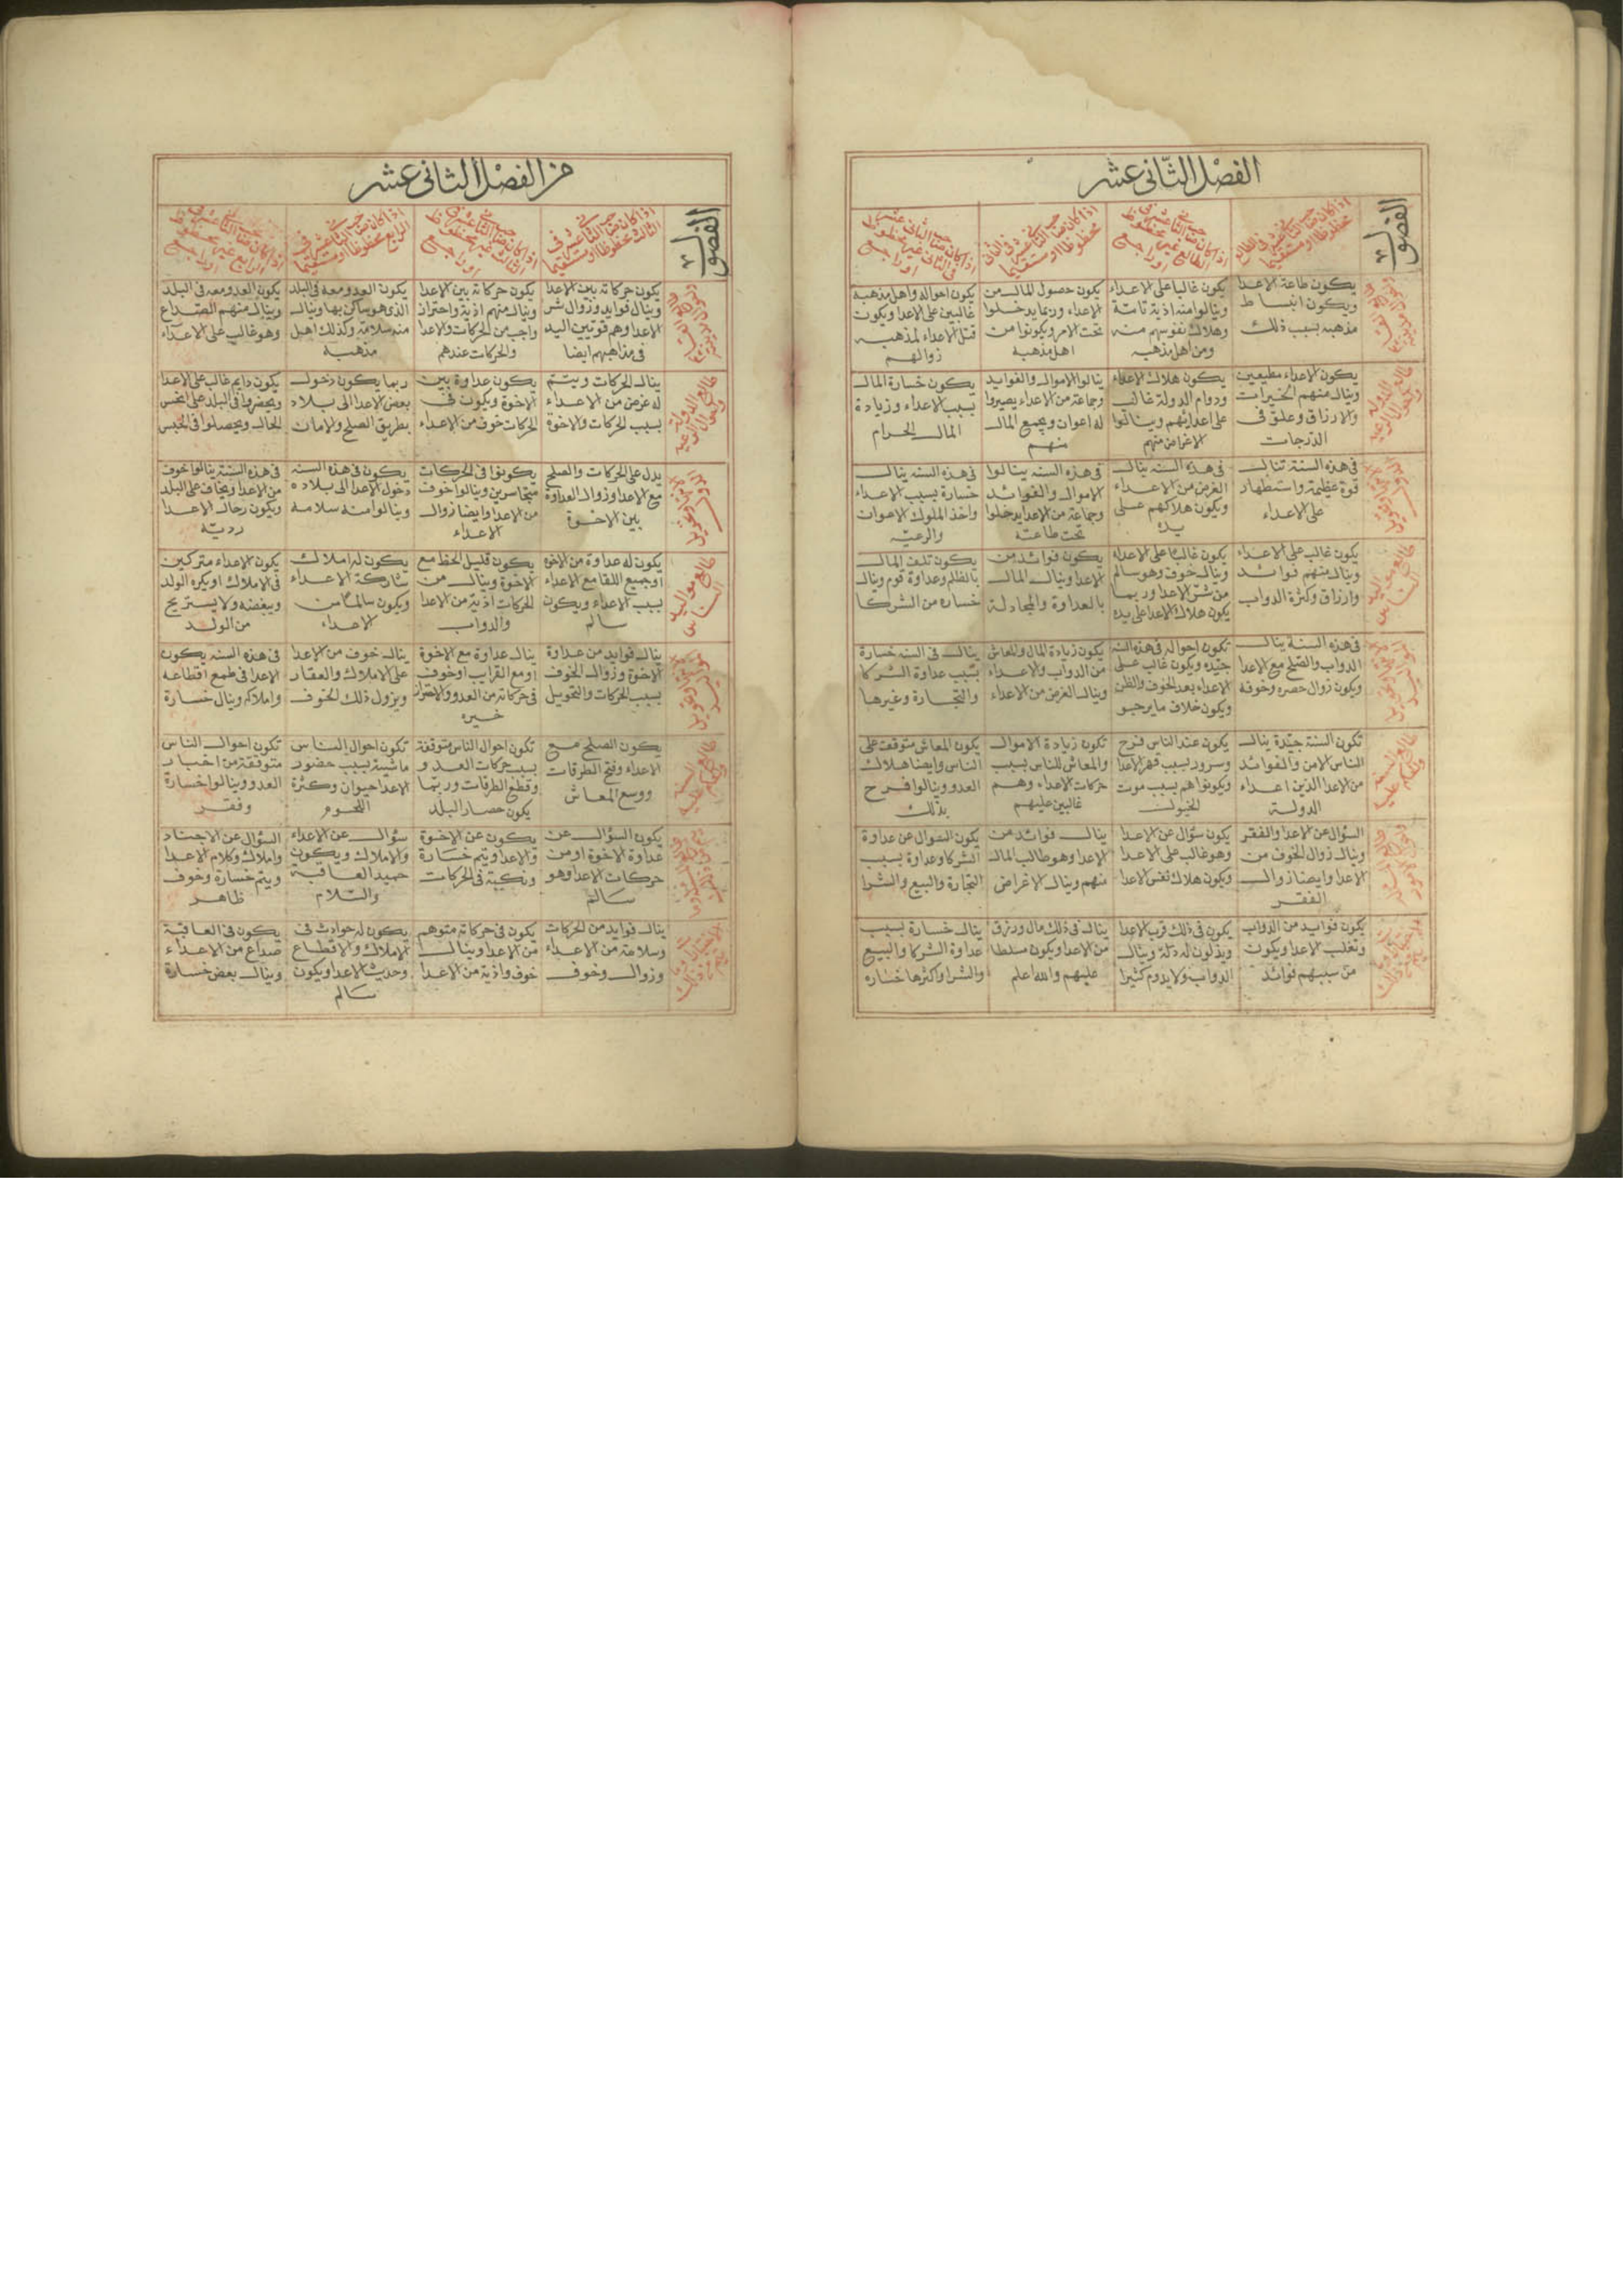 الفصل الثاني عشر
الفصول
اذا كان صاحب الثاني عشر في الطالع
محظوظا او مستقيما
اذا كان صاحب الثاني عشر في
الطالع غير محظوظ
او راجع
اذا كان صاحب الثاني عشر في الثاني
محظوظا او مستقيما
اذا كان صاحب الثاني عشر
في الثاني غير محظوظ
او راجع
يكون طاعة الاعدا
ويكون انبساط
مذهبه بسبب ذلك
يكون غالبا على الاعداء
وينالوا منه اذية تامة
وهلاك نفوسهم منه
ومن اهل مذهبه
يكون حصول المال من
الاعداء وربما يدخلوا
تحت الامر ويكونوا من
اهل مذهبه
يكون احواله واهل مذهبه
غالبين على الاعدا ويكون
قتل الاعداء لمذهبه
زوالهم
يكون الاعداء مطيعين
وينال منهم الخيرات
والارزاق وعلو في
الدرجات
يكون هلاك الاعداء
ودوام الدولة غالب
على اعدائهم وينالوا
الاغراض منهم
ينالوا الاموال والفوايد
وجماعة من الاعداء يصيروا
له اعوان ويجمع المال
منهم
يكون خسارة المال
بسبب الاعداء وزيادة
المال الحرام
في هذه السنة تنال
قوة عظيمة واستظهار
على الاعداء
في هذه السنه ينال
الغرض من الاعداء
ويكون هلاكهم على
يده
في هذه السنه ينالوا
الاموال والفوائد
وجماعة من الاعدا يدخلوا
تحت طاعته
في هذه السنه ينال
خسارة بسبب الاعداء
واخذ الملوك الاموات
والرعيه
يكون غالب على الاعداء
وينال منهم فوائد
وارزاق وكثرة الدواب
يكون غالبا على الاعداء
وينال خوف وهو سالم
من شر الاعدا وربما
يكون هلاك الاعدا على يده
يكون فوائد من
الاعدا وينال المال
بالعداوة والمجادلة
يكون تلف المال
بالظلم وعداوة قوم وينال
خساره من الشركا
في هذه السنة ينال
الدواب والصلح مع الاعدا
ويكون زوال حصره وخوفه
تكون احواله في هذه السنه
جيده ويكون غالب على
الاعداء بعد الخوف والظن
ويكون خلاف ما يرجو
يكون زيادة المال والمعاش
من الدواب والاعداء
وينال الغرض من الاعداء
ينال في السنه خسارة
بسبب عداوة الشركا
والتجارة وغيرها
تكون السنة جيدة ينال
الناس الامن والفوائد
من الاعدا الذين اعداء
الدولة
يكون عند الناس فرح
وسرور بسبب قهر الاعدا
ويكونوا هم بسبب موت
الخيول
تكون زيادة الاموال
والمعاش للناس بسبب
حركات الاعداء وهم
غالبين عليهم
يكون المعاش متوقف على
الناس وايضا هلاك
العدو وينالوا فرح
بذلك
السؤال عن الاعدا والفقر
وينال زوال الخوف من
الاعدا وايضا زوال
الفقر
يكون سؤال عن الاعدا
وهو غالب على الاعدا
ويكون هلاك نفس الاعدا
ينال فوائد من
الاعدا وهو طالب المال
منهم وينال الاغراض
يكون السؤال عن عداوة
الشركا وعداوة بسبب
التجارة والبيع والشرا
يكون فوايد من الدواب
وتغلب الاعدا ويكون
من سببهم فوائد
يكون في ذلك قرب الاعدا
ويذلون له ذلة وينال
الدواب ولا يدوم كثيرا
ينال في ذلك مال ورزق
من الاعدا ويكون مسلطا
عليهم والله اعلم
ينال خسارة بسبب
عداوة الشركا والبيع
والشرا واكثرها خساره
من الفصل الثاني عشر
الفصول
اذا كان صاحب الثاني عشر في
الثالث محظوظا او مستقيما
اذا كان صاحب الثاني عشر في
الثالث غير محظوظ
او راجع
اذا كان صاحب الثاني عشر في
الرابع محظوظا او مستقيما
اذا كان صاحب الثاني عشر في
الرابع غير محظوظ
او راجع
يكون حركاته بين الاعدا
وينال فوايد وزوال شر
الاعدا وهم قويين اليه
في مذاهبهم ايضا
يكون حركاته بين الاعدا
وينال منهم اذية واحتراز
واجب من الحركات والاعدا
والحركات عندهم
يكون العدو معه في البلد
الذي هو ساكن بها وينال
منه سلامة وكذلك اهل
مذهبه
يكون العدو معه في البلد
وينال منهم الصداع
وهو غالب على الاعداء
ينال الحركات ويتم
له غرض من الاعداء
بسبب الحركات والاخوة
يكون عداوة بين
الاخوة ويكون في
الحركات خوف من الاعداء
ربما يكون دخول
بعض الاعدا الى بلاد
بطريق الصلح والامان
يكون دايم غالب على الاعدا
ويحضروا في البلد على انحس
الحال ويحصلوا في الحبس
يدل على الحركات والصلح
مع الاعدا وزوال العداوة
بين الاخوة
يكونوا في الحركات
متجاسرين وينالوا خوف
من الاعدا وايضا زوال
الاعداء
يكون في هذه السنه
دخول الاعدا الى بلاده
وينالوا منه سلامه
في هذه السنة ينالوا خوف
من الاعدا ويخاف على البلد
ويكون رجال الاعدا
رديه
يكون له عداوة من الاخوه
او جميع اللقا مع الاعداء
بسبب الاعداء ويكون
سالم
يكون قليل الحظ مع
الاخوة وينال من
الحركات اذية من الاعدا
والدواب
يكون له املاك
شاركة الاعداء
ويكون سالما من
الاعداء
يكون الاعداء متركبين
في الاملاك او يكره الولد
ويبغضه ولا يستريح
من الولد
ينال فوايد من عداوة
الاخوة وزوال الخوف
بسبب الحركات والتحويل
ينال عداوة مع الاخوة
او مع القراب او خوف
في حركاته من العدو والاحتراز
خيره
ينال خوف من الاعدا
على الاملاك والعقار
ويزول ذلك الخوف
في هذه السنه يكون
الاعدا في طمع اقطاعه
واملاكه وينال خسارة
يكون الصلح مع
الاعداء وفتح الطرقات
ووسع المعاش
تكون احوال الناس متوقفة
بسبب حركات العدو
وقطع الطرقات وربما
يكون حصار البلد
تكون احوال الناس
ماشية بسبب حضور
الاعدا حيوان وكثرة
اللحوم
تكون احوال الناس
متوقفة من اخبار
العدو وينالوا خسارة
وفقر
يكون السؤال عن
عداوة الاخوة او من
حركات الاعدا وهو
سالم
يكون عن الاخوة
والاعدا ويتم خسارة
ونكبة في الحركات
سؤال عن الاعداء
والاملاك ويكون
حميد العاقبة
والسلام
السؤال عن الاجناد
واملاك وكلام الاعدا
ويتم خسارة وخوف
ظاهر
ينال فوايد من الحركات
وسلامة من الاعداء
وزوال وخوف
يكون في حركاته متوهم
من الاعدا وينال
خوف واذية من الاعدا
يكون له حوادث في
الاملاك والاقطاع
وحديث الاعدا ويكون
سالم
يكون في العاقبة
صداع من الاعداء
وينال بعض خسارة